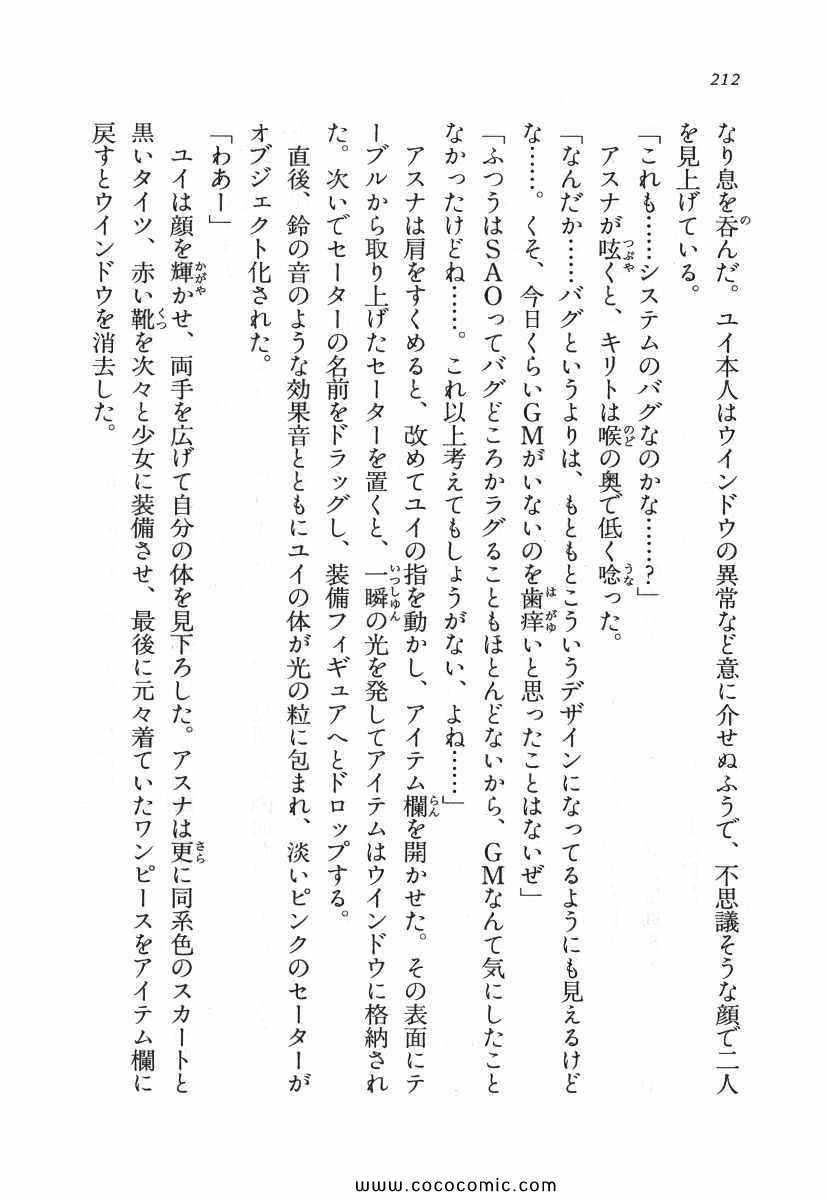 212
なり息を呑んだ。ユイ本人はウインドウの異常など意に介せぬふうで、不思議そうな顔で二人
を見上げている。
「これも……システムのバグなのかな……？」
アスナが呟くと、キリトは喉の奥で低く唸った。
「なんだか……バグというよりは、もともとこういうデザインになってるようにも見えるけど
な……。くそ、今日くらいGMがいないのを歯痒いと思ったことはないぜ」
「ふつうはSAOってバグどころかラグることもほとんどないから、GMなんて気にしたこと
なかったけどね……。これ以上考えてもしょうがない、よね……」
アスナは肩をすくめると、改めてユイの指を動かし、アイテム欄を開かせた。その表面にテ
ーブルから取り上げたセーターを置くと、一瞬の光を発してアイテムはウインドウに格納され
た。次いでセーターの名前をドラッグし、装備フィギュアへとドロップする。
直後、鈴の音のような効果音とともにユイの体が光の粒に包まれ、淡いピンクのセーターが
オブジェクト化された。
「わあー」
ユイは顔を輝かせ、両手を広げて自分の体を見下ろした。アスナは更に同系色のスカートと
黒いタイツ、赤い靴を次々と少女に装備させ、最後に元々着ていたワンピースをアイテム欄に
戻すとウインドウを消去した。
www.cococomic.com